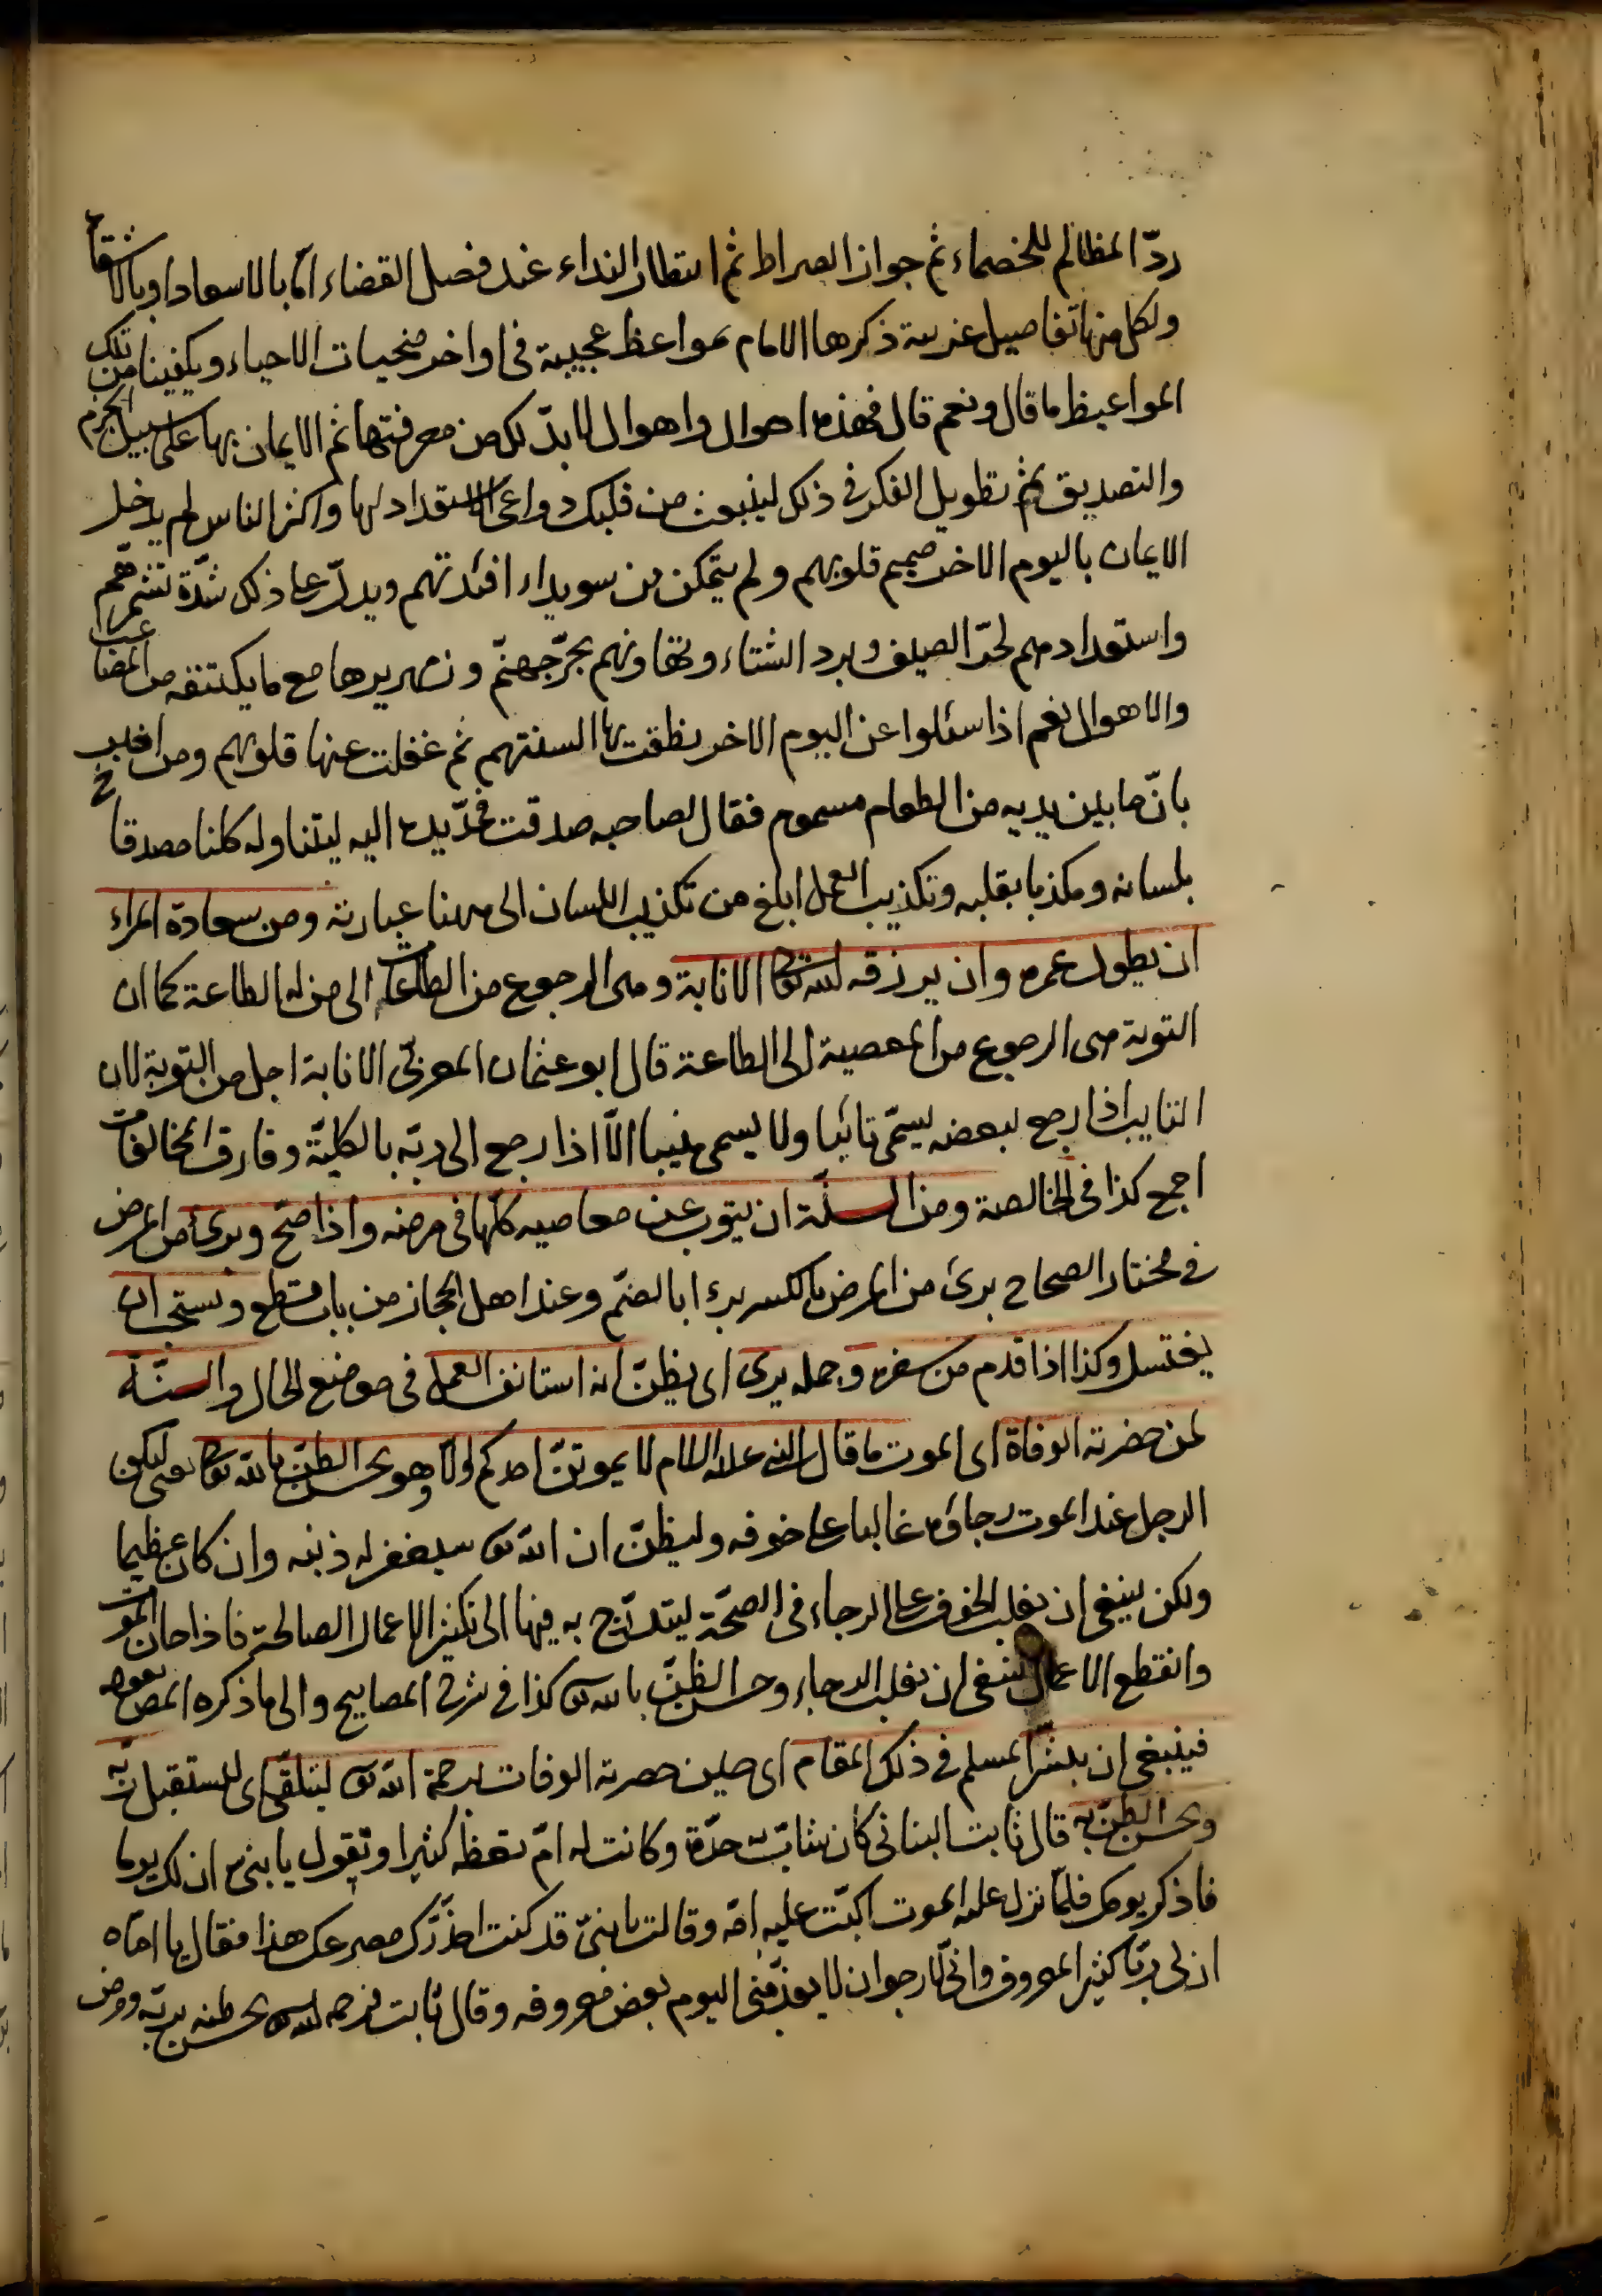 ردّ المظالم للخصماء ثم جواز الصراط ثم انتظار النداء عند فصل القضاء امّا بالاسعاد او بالاشقاء
ولكل منها تفاصيل غريبة ذكرها الامام بمواعظ عجيبة فى اواخر منجيات الاحياء ويكفينا من تلك
المواعيظ ما قال ونعم قال فهذه احوال واهوال لا بدّ لك من معرفتها ثم الايمان بها على سبيل الجزم
والتصديق ثم تطويل الفكر فى ذلك لينبعث من قلبك دواعى الاستعداد لها واكثر الناس لم يدخل
الايمان باليوم الاخر صميم قلوبهم ولم يتمكن من سويداء افئدتهم ويدلّ على ذلك شدّة تشمرهم
واستعدادهم لحرّ الصيف وبرد الشتاء وتهاونهم بحرّ جهنّم وزمهريرها مع ما يكتنفه من المصاعب
والاهوال نعم اذا سئلوا عن اليوم الاخر نطقت بها السنتهم ثم غفلت عنها قلوبهم ومن اخبر
بانّ ما بين يديه من الطعام مسموم فقال لصاحبه صدقت فمدّ يده اليه ليتناوله كان مصدقا
بلسانه ومكذبا بقلبه وتكذيب العمل ابلغ من تكذيب اللسان الى ههنا عبارته ومن سعادة المراء
ان يطول عمره وان يرزقه الله تعالى الانابة وهى الرجوع من الطاعة الى منه الطاعة كما ان
التوبة هى الرجوع من المعصية الى الطاعة قال ابو عثمان المغربى الانابة اجل من التوبة لان
التايب اذا رجع لبعضه يسمّى تائبا ولا يسمى منيبا الاّ اذا رجع الى ربّه بالكليّة وفارق المخالفات
اجمع كذا فى الخالصة ومن السنّة ان يتوب عن معاصيه كلّها فى مرضه واذا صحّ وبرئ من المرض
فى مختار الصحاح برئ من المرض بالكسر برءا بالضمّ وعند اهل الحجاز من باب قطع ويستحب ان
يغتسل وكذا اذا قدم من سفره وجمله يرى اى يظنّ انه استانف العمل فى موضع الحال والسنّة
لمن حضرته الوفاة اى الموت ما قال النبى عليه السلام لا يموتنّ احدكم الاّ وهو يحسن الظنّ بالله تعالى يعنى ليكن
الرجل عند الموت رجاؤه غالبا على خوفه وليظنّ ان الله تعالى سيغفر له ذنبه وان كان عظيما
ولكن ينبغى ان يغلب الخوف على الرجاء فى الصحّة ليتدرّج به فيها الى تكثير الاعمال الصالحة فاذا حان الموت
وانقطع الاعمال ينبغى ان يغلب الرجاء وحسن الظنّ بالله تعالى كذا فى شرح المصابيح والى ما ذكره المص بقوله
فينبغى ان يبشّر المسلم فى ذلك المقام اى حين حضرته الوفات برحمة الله تعالى ليتلقى اى ليستقبل ربّه
ويحسن الظنّ به قال ثابت البنانى كان شابّ به حدّة وكانت له امّ تعظه كثيرا وتقول يا بنى ان لك يوما
فاذكر يومك فلمّا نزل عليه الموت اكبّت عليه امّه وقالت يا بنىّ قد كنت احذّرك مصرعك هذا فقال يا امّاه
ان لى ربّا كثير المعروف وانّى لارجو ان لا يعذّبنى اليوم بعض معروفه وقال ثابت فرحمه الله تعالى بحسن ظنه بربّه ومرض